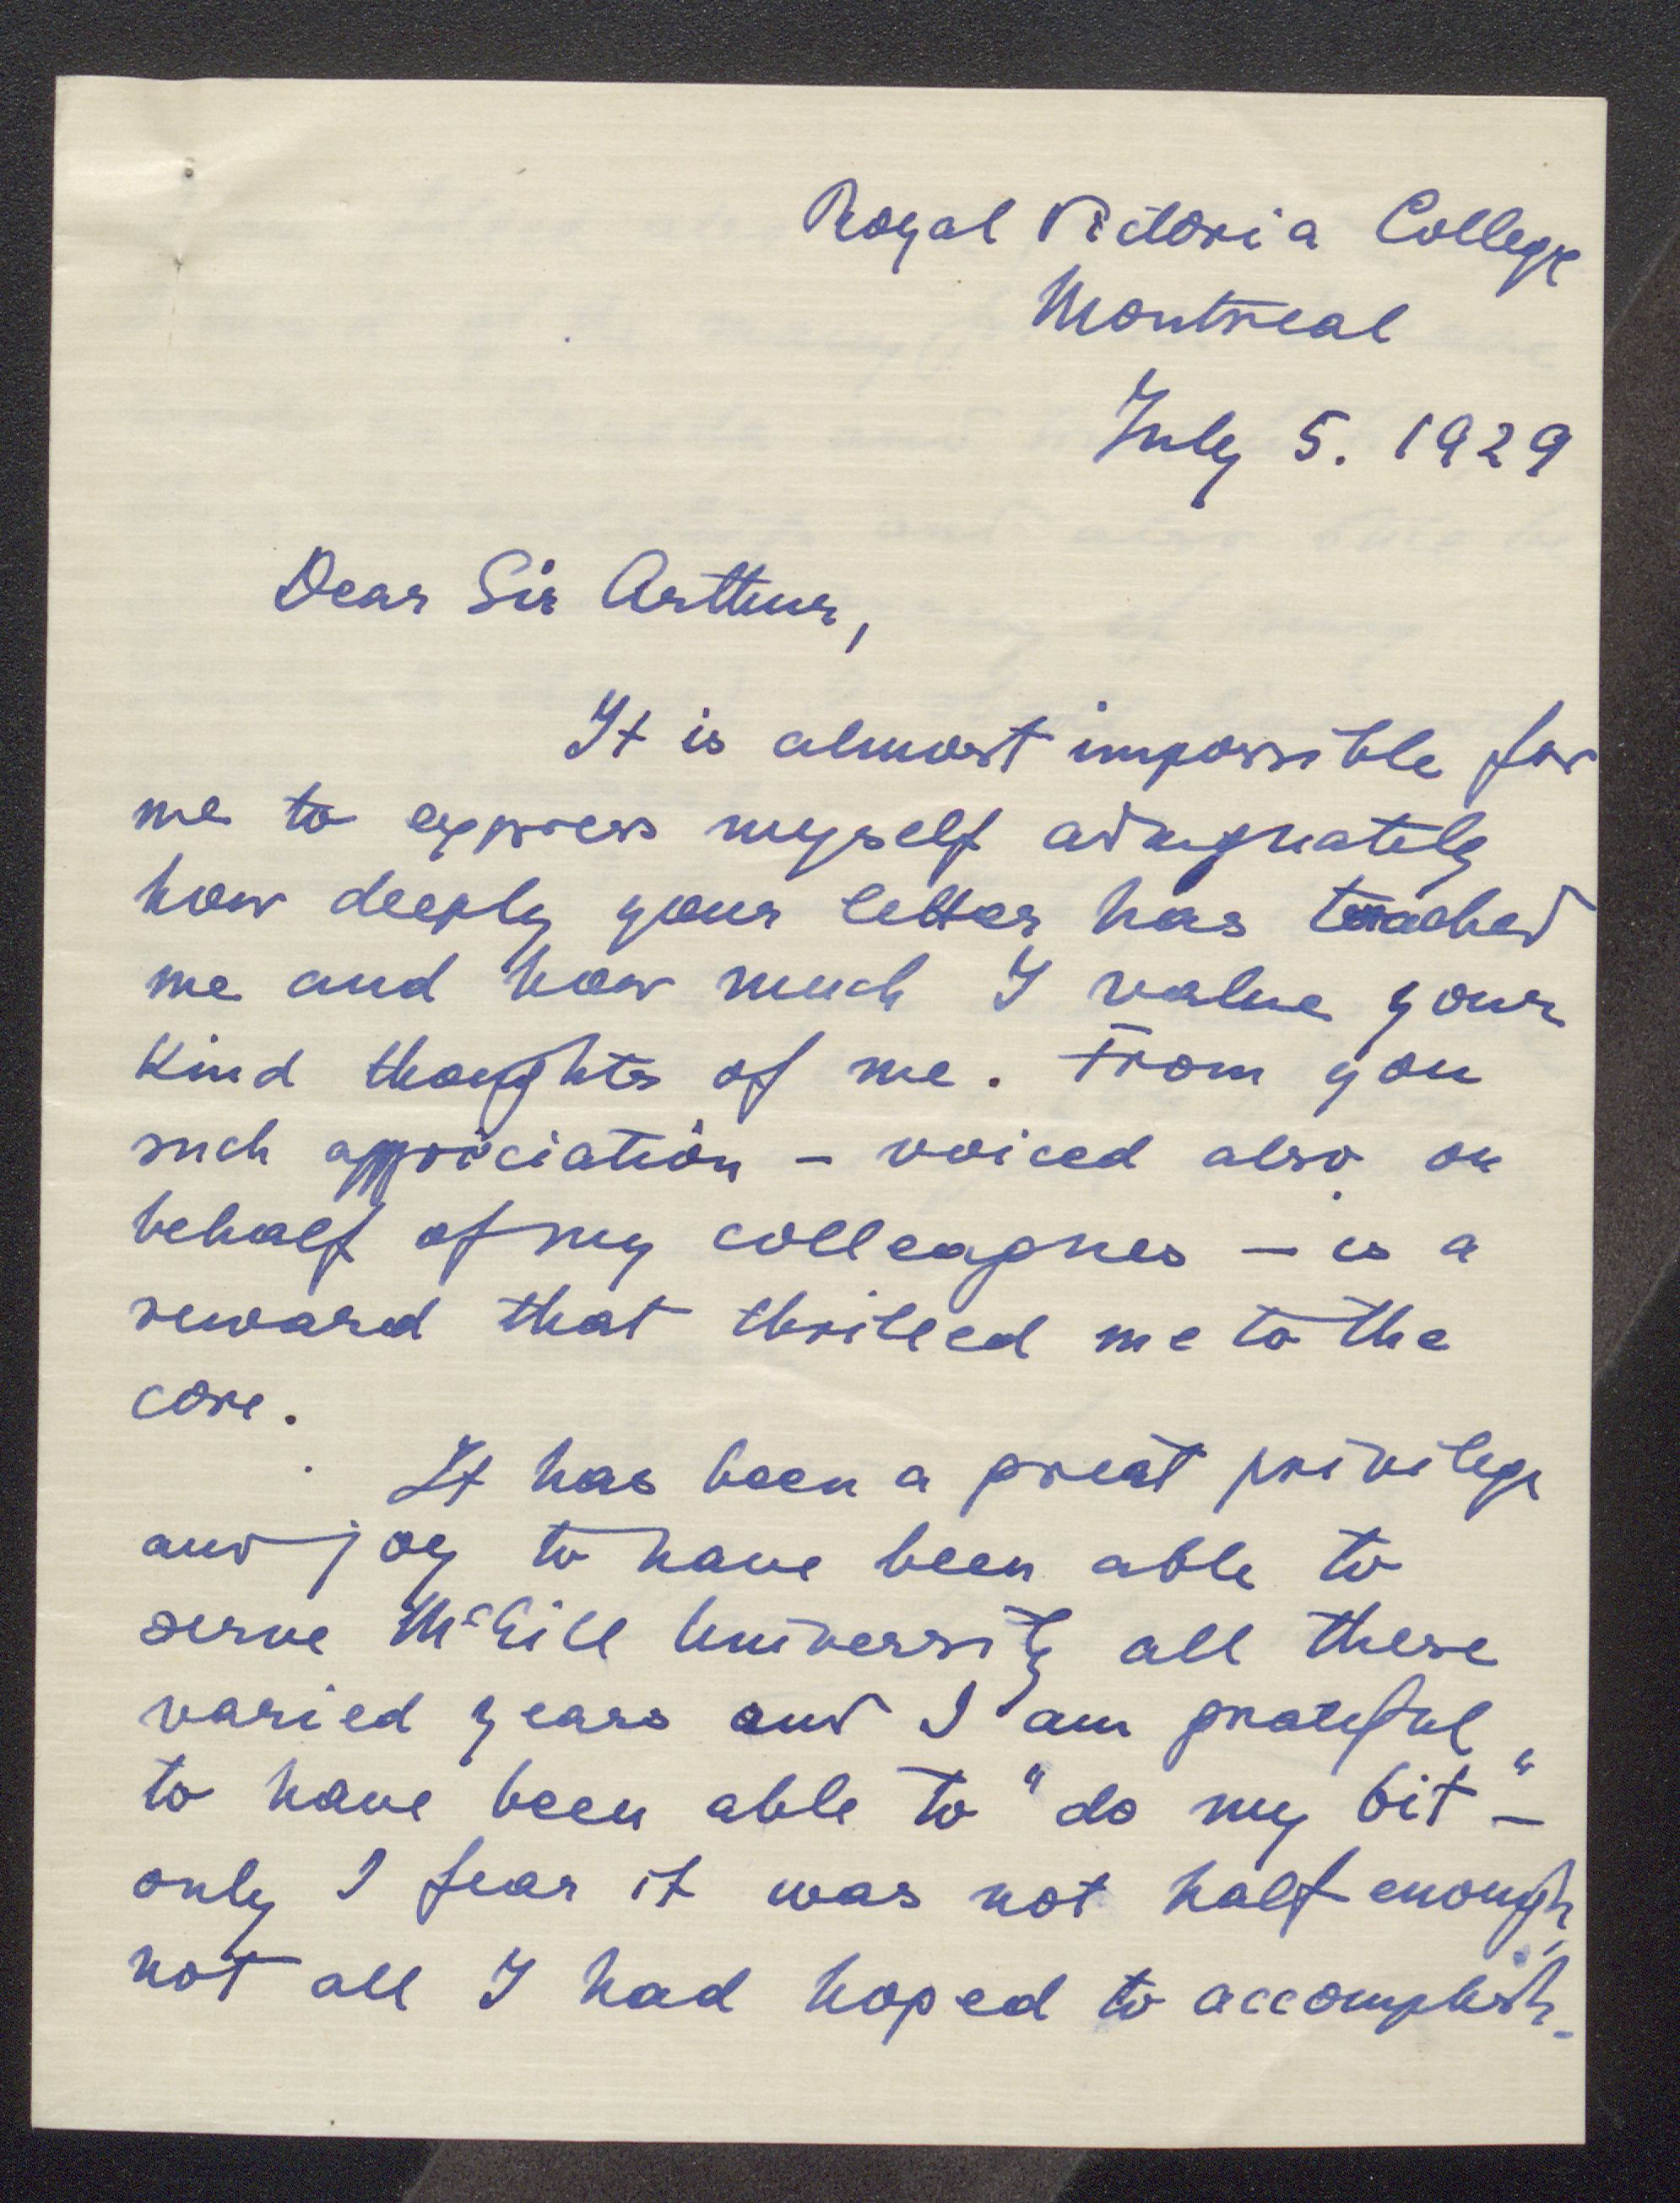 Royal Victoria College
Montreal
July 5. 1929
Dear Sir Arthur,
It is almost impossible for
me to express myself adequately
how deeply your letter has touched
me and how much I value your
kind thoughts of me. From you
such appreciation – voiced also on
behalf of my colleagues – is a
reward that thrilled me to the
core.
It has been a great privilege
and joy to have been able to
serve McGill University all these
varied years and I am grateful
to have been able to "do my bit" –
only I fear it was not half enough,
not all I had hoped to accomplish.